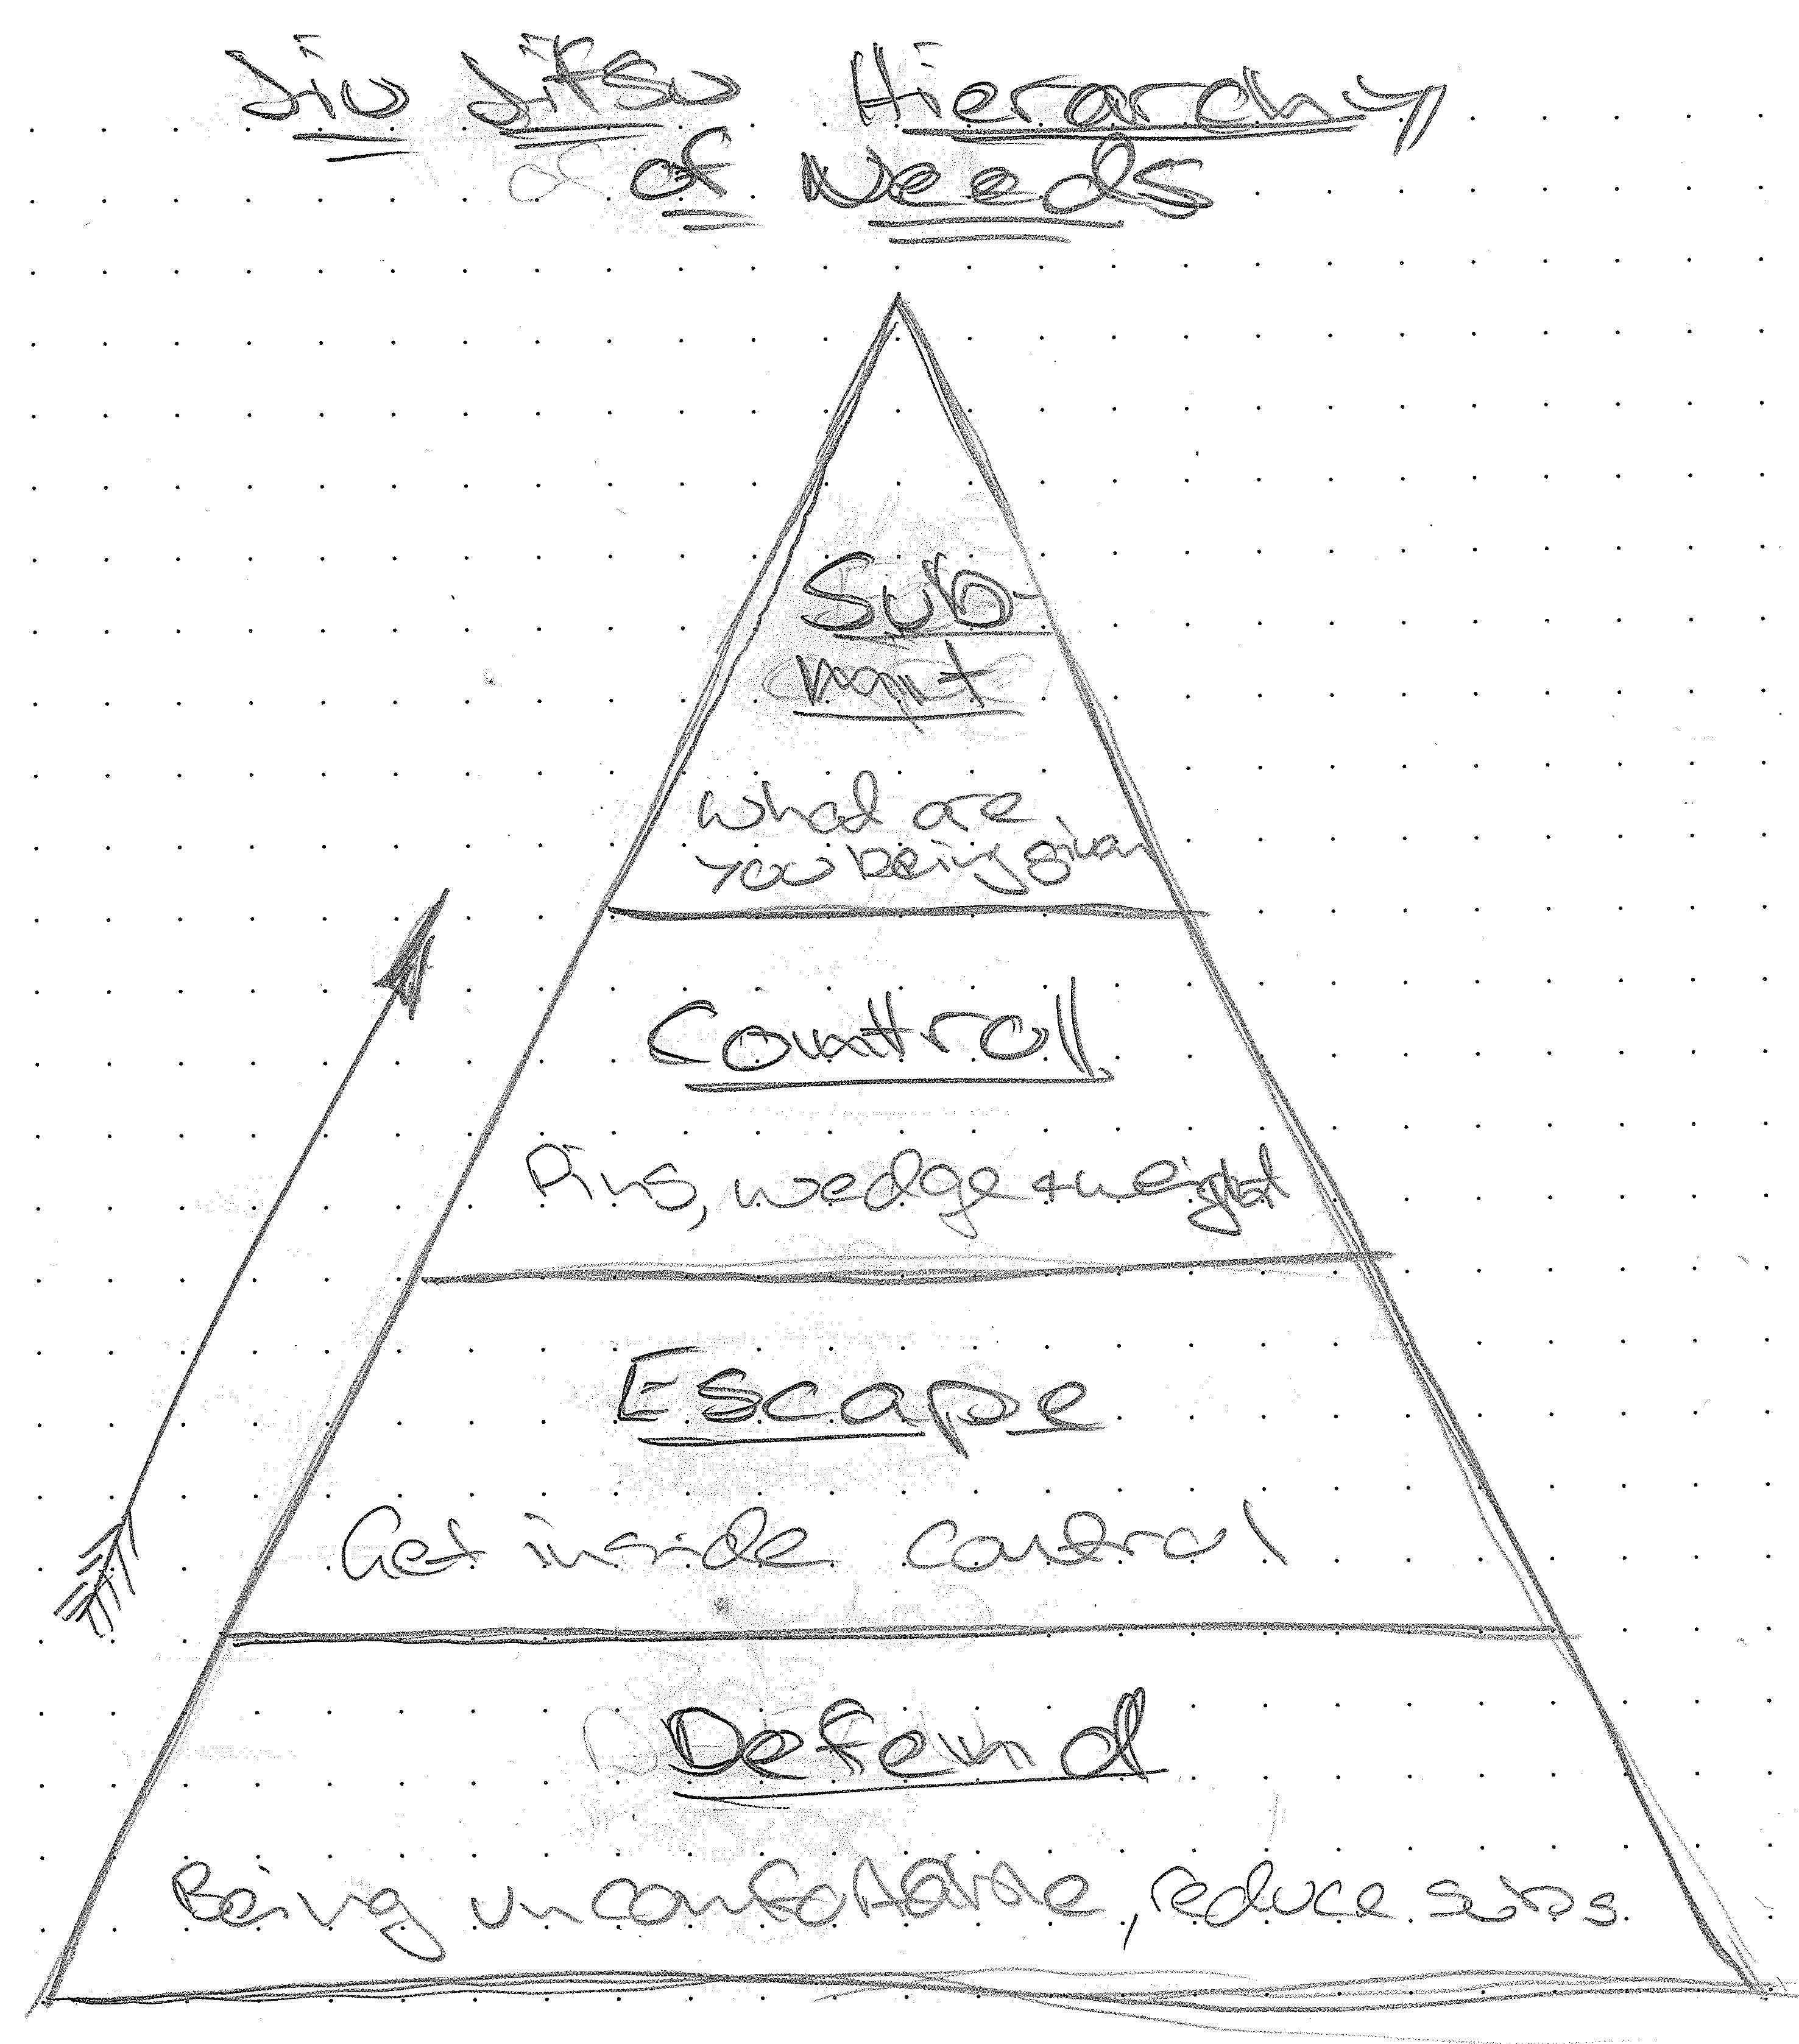 Jiu Jitsu Hierarchy
of Needs
Sub-
mit
What are
you being given
Counttroll
Pins, wedge + weight
Escape
Get inside control
Defend
Being uncomfortable, reduce subs.